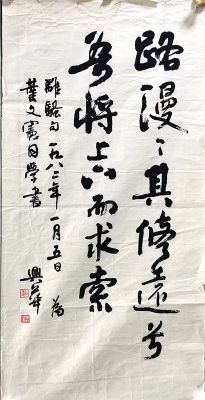 路漫〻其修遠兮
吾將上下而求索
離騷句 一九八二年一月五日 為
葉文憲同學書